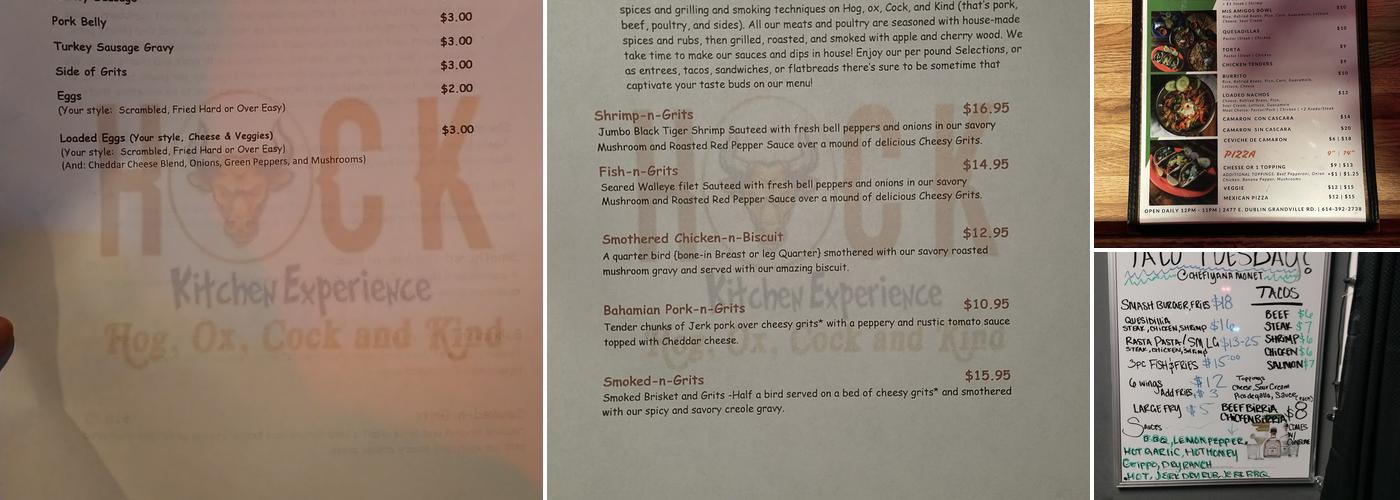 Pork Belly $3.00
Turkey Sausage Gravy $3.00
Side of Grits $3.00
Eggs $2.00
(Your style: Scrambled, Fried Hard or Over Easy)
Loaded Eggs (Your style, Cheese & Veggies) $3.00
(Your style: Scrambled, Fried Hard or Over Easy)
(And: Cheddar Cheese Blend, Onions, Green Peppers, and Mushrooms)
HOCK
Kitchen Experience
Hog, Ox, Cock and Kind
spices and grilling and smoking techniques on Hog, ox, Cock, and Kind (that's pork,
beef, poultry, and sides). All our meats and poultry are seasoned with house-made
spices and rubs, then grilled, roasted, and smoked with apple and cherry wood. We
take time to make our sauces and dips in house! Enjoy our per pound Selections, or
as entrees, tacos, sandwiches, or flatbreads there's sure to be sometime that
captivate your taste buds on our menu!
Shrimp-n-Grits $16.95
Jumbo Black Tiger Shrimp Sauteed with fresh bell peppers and onions in our savory
Mushroom and Roasted Red Pepper Sauce over a mound of delicious Cheesy Grits.
Fish-n-Grits $14.95
Seared Walleye filet Sauteed with fresh bell peppers and onions in our savory
Mushroom and Roasted Red Pepper Sauce over a mound of delicious Cheesy Grits.
Smothered Chicken-n-Biscuit $12.95
A quarter bird {bone-in Breast or leg Quarter} smothered with our savory roasted
mushroom gravy and served with our amazing biscuit.
Bahamian Pork-n-Grits $10.95
Tender chunks of Jerk pork over cheesy grits* with a peppery and rustic tomato sauce
topped with Cheddar cheese.
Smoked-n-Grits $15.95
Smoked Brisket and Grits -Half a bird served on a bed of cheesy grits* and smothered
with our spicy and savory creole gravy.
Kitchen Experience
Hog, Ox, Cock and Kind
MIS AMIGOS BOWL $10
Rice, Refried Beans, Pico, Corn, Guacamole, Lettuce,
Cheese, Sour Cream
QUESADILLAS $10
Pastor | Steak | Chicken
TORTA $9
Pastor | Steak | Chicken
CHICKEN TENDERS $9
BURRITO $10
Rice, Refried Beans, Pico, Corn, Guacamole,
Lettuce, Cheese
LOADED NACHOS $12
Cheese, Refried Beans, Pico,
Sour Cream, Lettuce, Guacamole
CAMARON CON CASCARA $14
CAMARON SIN CASCARA $20
CEVICHE DE CAMARON $6 | $18
PIZZA 9" | 14"
CHESSE OR 1 TOPPING $9 | $13
ADDITIONAL TOPPINGS: Beef Pepperoni, Onion +$1 | $1.25
Chicken, Banana Pepper, Mushrooms
VEGGIE $12 | $15
MEXICAN PIZZA $12 | $15
OPEN DAILY 12PM - 11PM | 2477 E. DUBLIN GRANDVILLE RD. | 614-392-2738
TACO TUESDAY!
@CHEFIYANAMONET
SMASH BURGER, FRIES $18
QUESIDILLA
STEAK, CHICKEN, SHRIMP $16
RASTA PASTA/SM, LG $13-25
STEAK, CHICKEN, SHRIMP
3PC FISH & FRIES $15.00
6 WINGS $12
ADD FRIES $3
LARGE FRY $5
TACOS
BEEF $6
STEAK $7
SHRIMP $6
CHICKEN $6
SALMON $7
Toppings
Cheese, Sour Cream
Pico de gallo, Sauce
BEEF BIRRIA
CHICKEN BIRRIA $8
*COMES
W/
CONSOME
Sauces
BBQ, LEMON PEPPER,
HOT GARLIC, HOT HONEY
Grippo, DRY RANCH